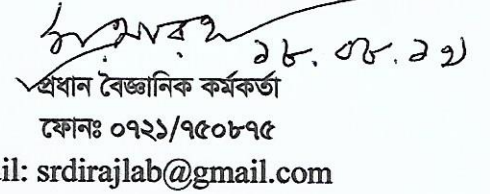 ১৮.০৮.১৭
প্রধান বৈজ্ঞানিক কর্মকর্তা
ফোনঃ ০৭২১/৭৫০৮৭৫
il: srdirajlab@gmail.com